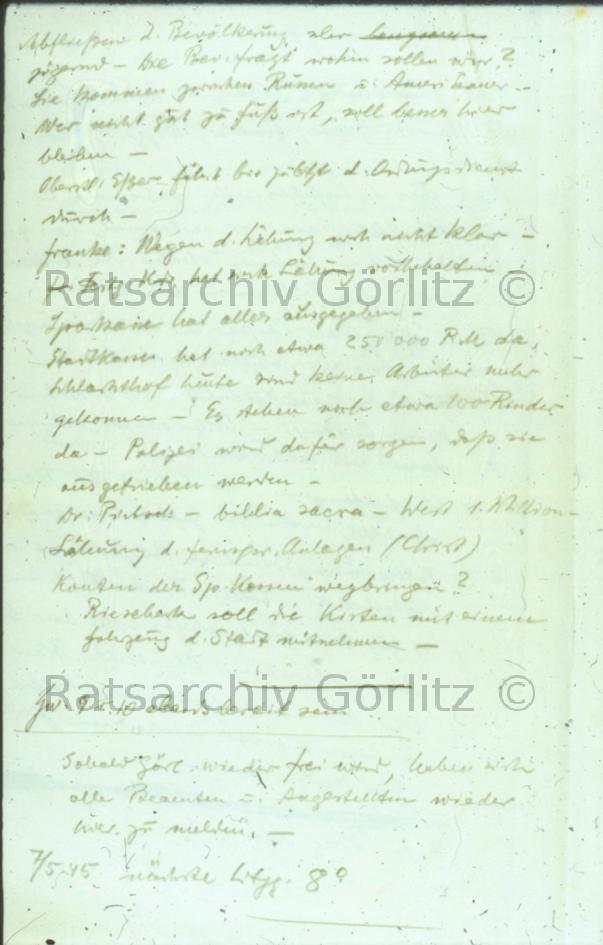 Abfließen d. Bevölkerung aber langsam
zögernd – Die Bev. fragt wohin sollen wir?
Sie kommen zwischen Russen u. Amerikaner..
Wer nicht gut zu Fuß ist, soll besser hier
bleiben –
Oberstl. führt bis zuletzt d. Ordnungsdienst
durch –
Franke: Wegen d. Lähmung noch nicht klar –
hat sich Lähmung vorbehalten –
Ratsarchiv Görlitz ©
Sparkasse hat alles ausgegeben –
Stadtkasse hat noch etwa 250 000 RM da.
Schlachthof heute sind keine Arbeiter mehr
gekommen – Es stehen noch etwa 100 Rinder
da – Polizei wird dafür sorgen, daß sie
ausgetrieben werden –
Dr. – biblia sacra – Wert 1. Million –
Lähmung d. Fernspr. Anlagen (Christ)
Konten der Sp. Kassen wegbringen?
soll die Kisten mit einem
Fahrzeug d. Stadt mitnehmen –
Ratsarchiv Görlitz ©
abends bereit sein
Sobald Görl. wieder frei wird, haben sich
alle Beamten u. Angestellten wieder
hier zu melden. –
7/5.45 nächste 8°